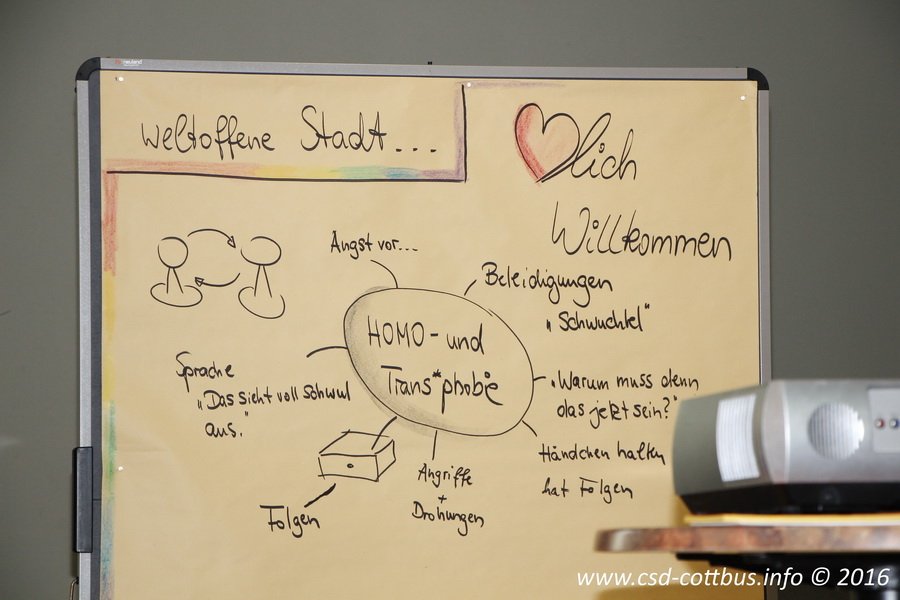 neuland
weltoffene Stadt...
lich
Willkommen
Angst vor...
Beleidigungen
"Schwuchtel"
HOMO- und
Trans*phobie
Sprache
"Das sieht voll schwul
aus."
"Warum muss denn
das jetzt sein?"
Händchen halten
hat Folgen
Angriffe
+
Drohungen
Folgen
www.csd-cottbus.info © 2016